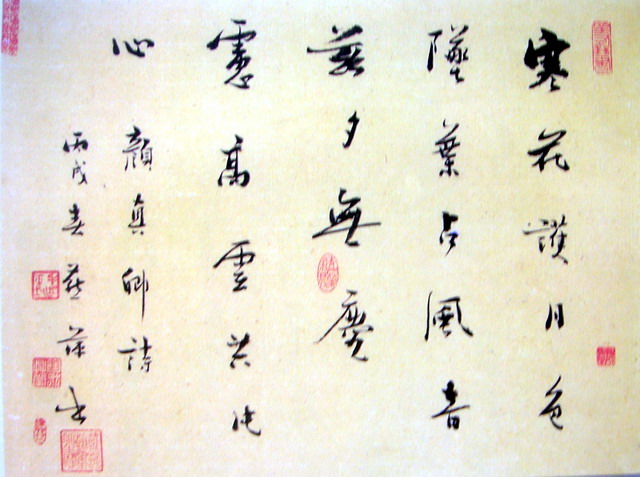 寒花護月色
墜葉占風音
茲夕無塵
慮高雲共片
心 顏真卿詩
丙戌春